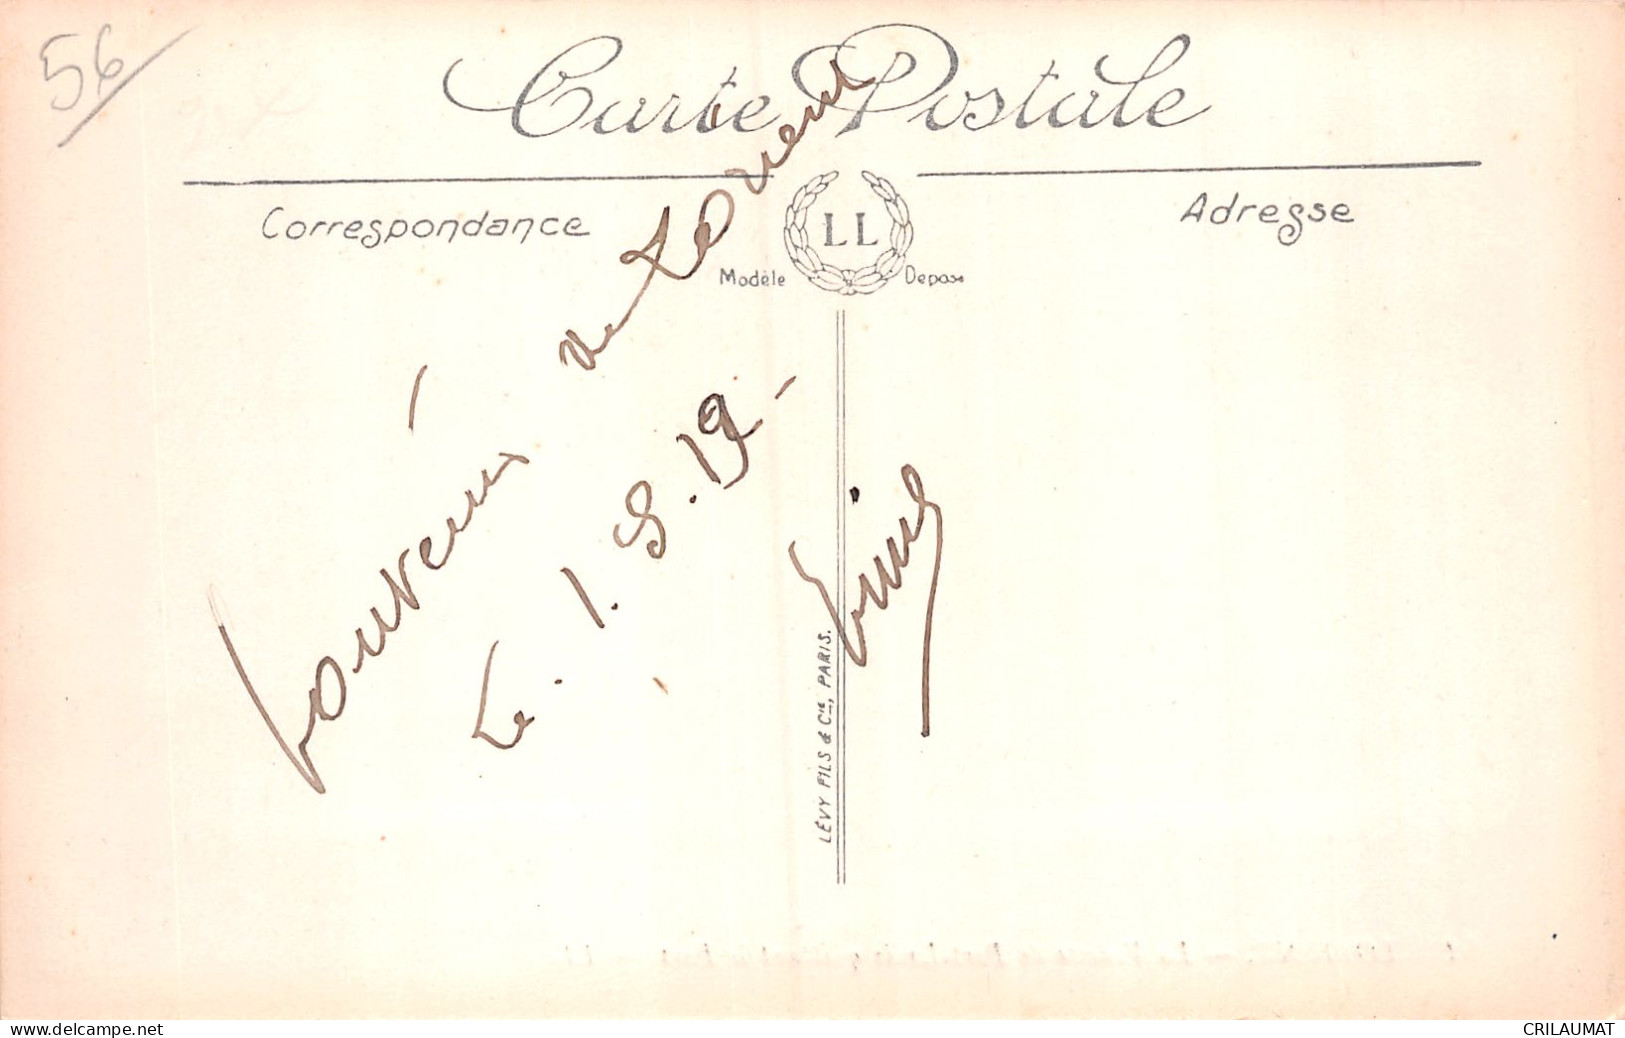 56
Carte Postale
Correspondance
LL
Modèle Déposé
Adresse
Souvenir de Lorient
Le 1.8.19-
LÉVY FILS & Cie, PARIS.
www.delcampe.net
CRILAUMAT